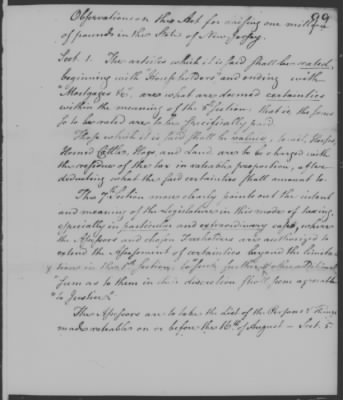 99
Observations on the Act for raising one million
of pounds in the State of New Jersey.
Sect. 1. The articles which it is said shall be rated,
beginning with "Householders" and ending with
"Mortgages &c", are what are deemed certainties
within the meaning of the Section, that is the sums
so to be rated are to be specifically paid.
Those which it is said shall be valued, to wit, Horses,
Horned Cattle, Hogs and Land are to be charged with
the residue of the tax in rateable proportion, after
deducting what the said certainties shall amount to.
The 7th Section more clearly points out the intent
and meaning of the Legislature in this mode of taxing,
especially in particular and extraordinary cases, where
the Assessors and chosen Freeholders are authorized to
extend the Assessment of certainties beyond the limita-
tions in the Section, to such further
"Sum as to them in their discretion shall seem agreeable
"to Justice."
The Assessors are to take the List of the Persons & Things
made rateable on or before the 16th of August — Sect. 5.